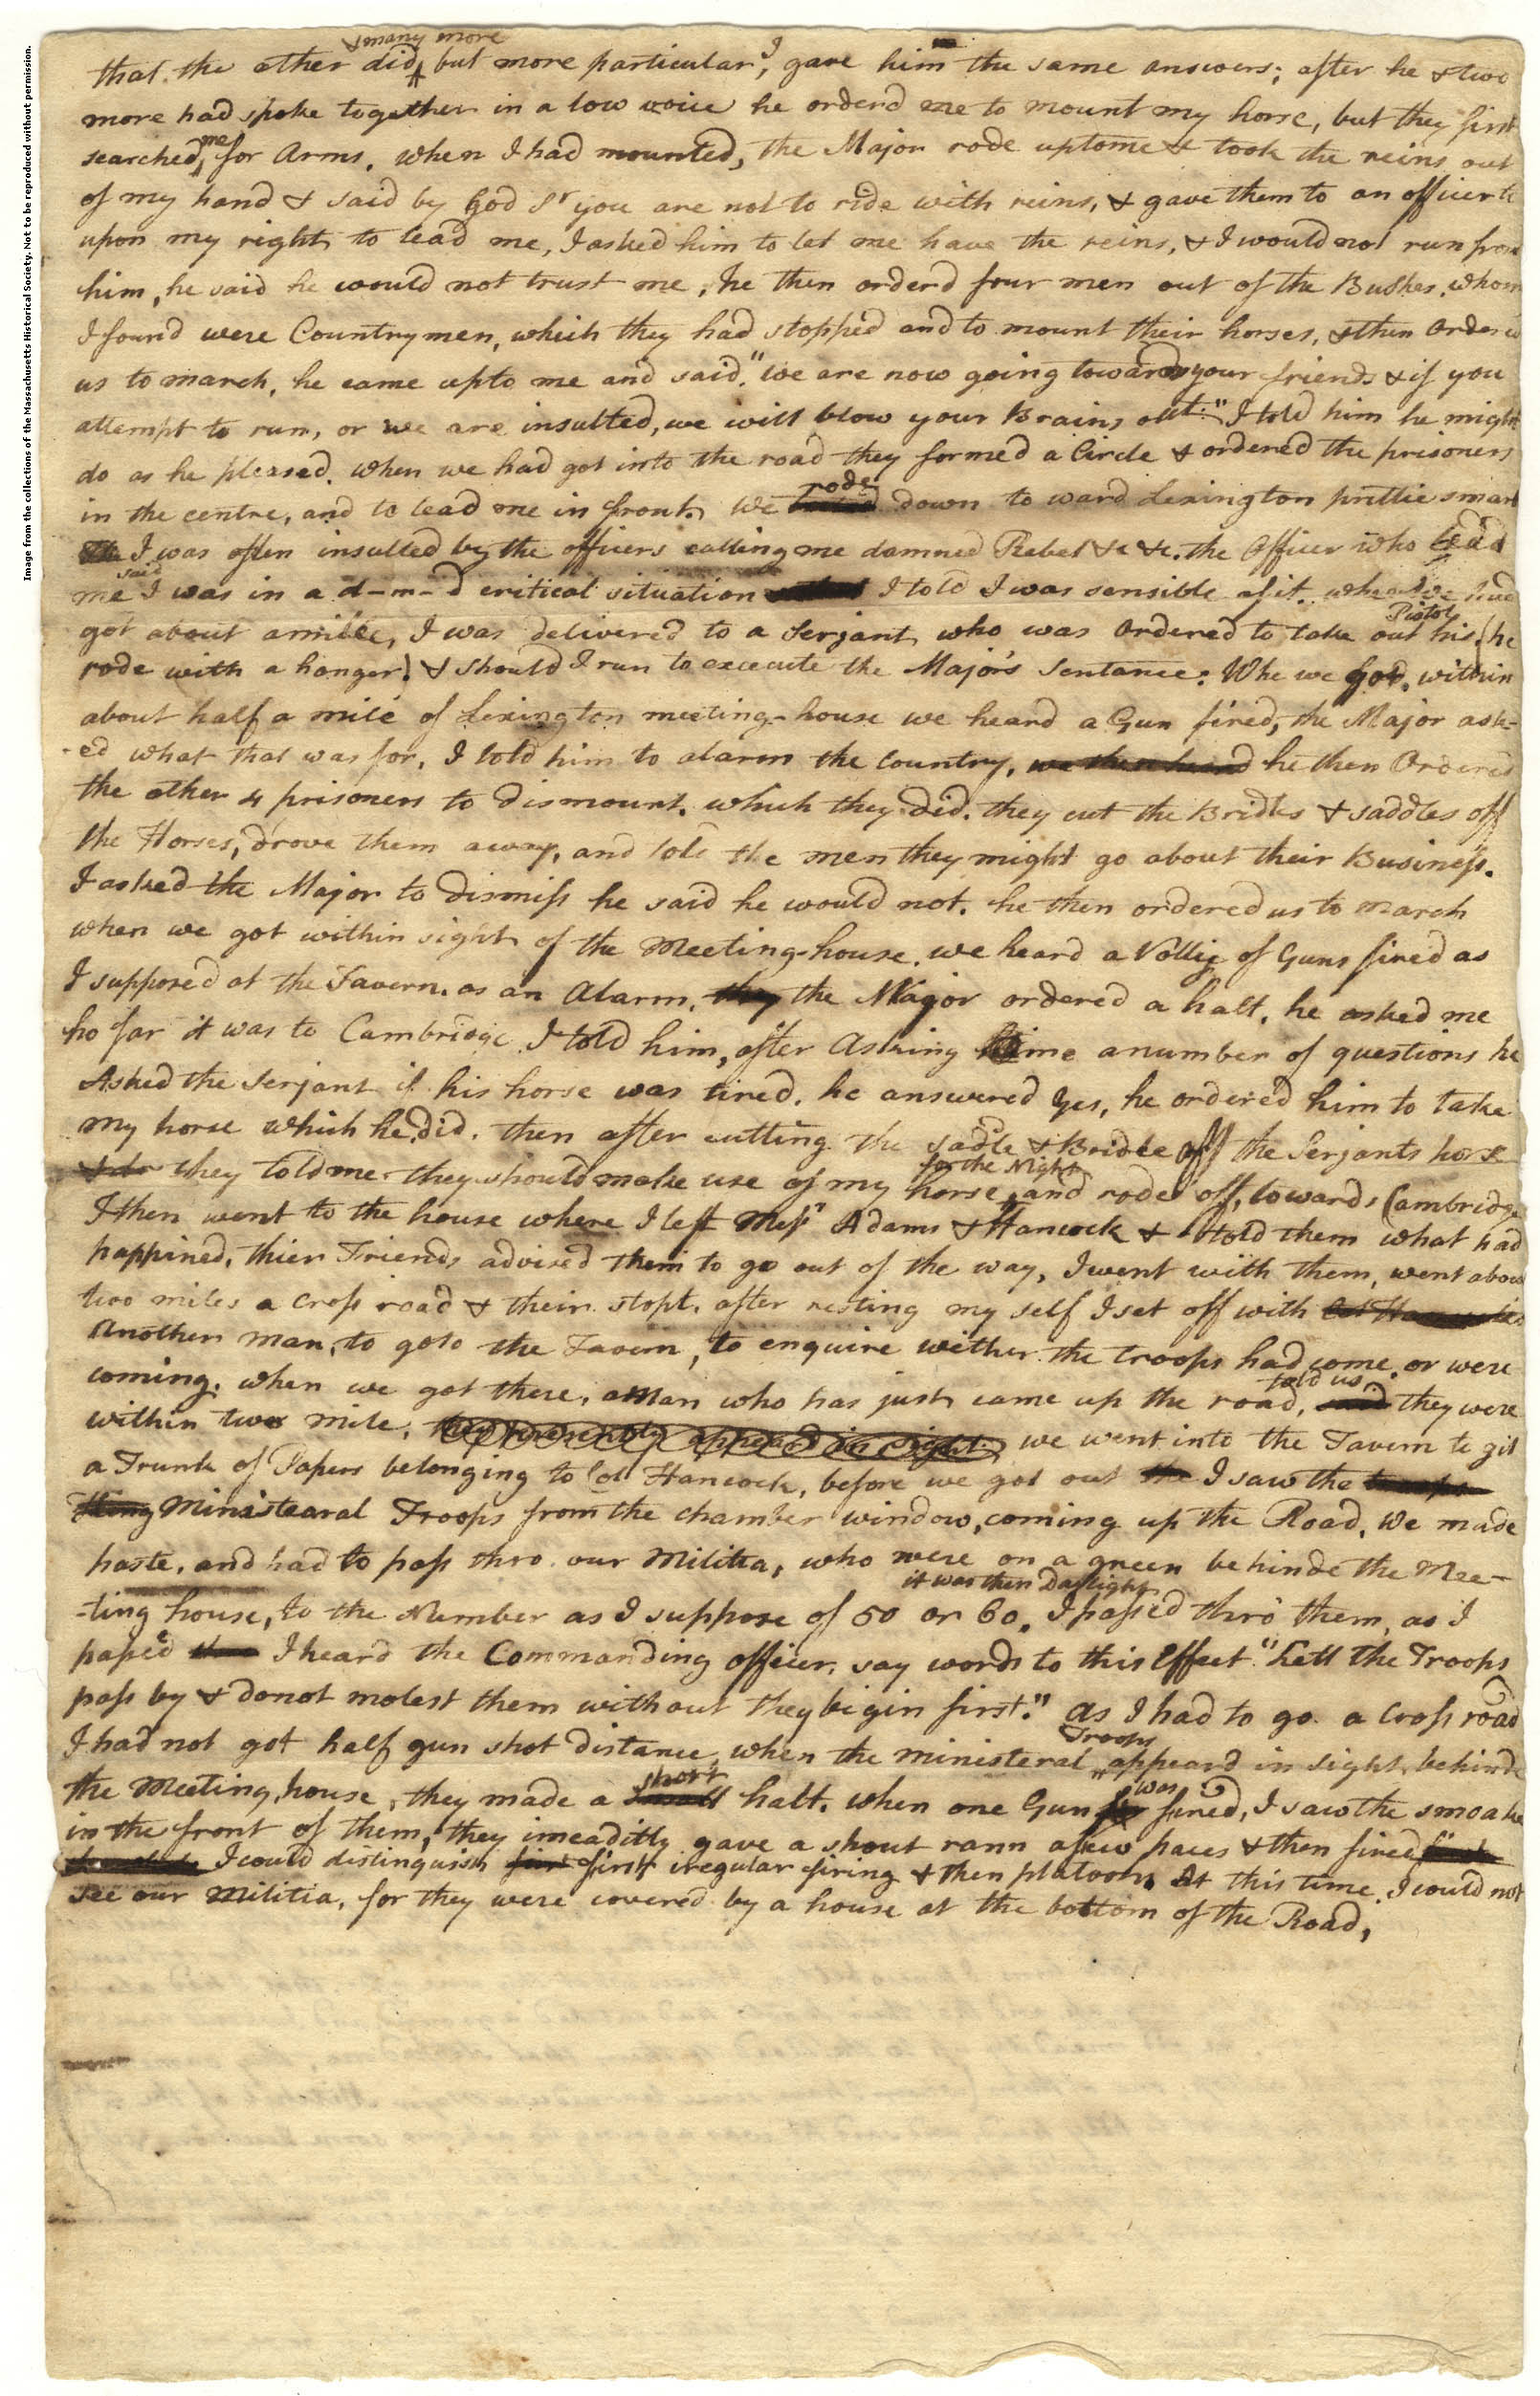 Image from the collections of the Massachusetts Historical Society. Not to be reproduced without permission.
& many more
that the other did, but more particular, I gave him the same answers; after he & two
more had spoke together in a low voice he orderd me to mount my horse, but they first
searched me for Arms. when I had mounted, the Major rode up to me & took the reins out
of my hand & said by God Sr you are not to ride with reins, & gave them to an officer
upon my right to lead me, I asked him to let me have the reins, & I would not run from
him, he said he would not trust me, he then orderd four men out of the Bushes, whom
I found were Countrymen, which they had stopped and to mount their horses, & then Ordered
us to march, he came up to me and said, "We are now going towards your friends & if you
attempt to run, or we are insulted, we will blow your Brains out." I told him he might
do as he pleased. when we had got into the road they formed a Circle & ordered the prisoners
in the centre, and to lead me in front. We rode down to ward Lexington prittie smart
I was often insulted by the officers calling me damned Rebel &c &c. the Officer who
me said I was in a d-m-d critical situation I told I was sensible of it. when we had
got about a mile, I was delivered to a Serjant who was Ordered to take out his Pistol (he
rode with a hanger) & should I run to execute the Major's Sentance: Whe we got within
about half a mile of Lexington meeting-house we heard a Gun fired, the Major ask-
-ed what that was for, I told him to alarm the Country, we then heard he then Ordered
the other 4 prisoners to dismount, which they did. they cut the Bridles & saddles off
the Horses, drove them away, and told the men they might go about their Business.
I asked the Major to dismiss he said he would not. he then ordered us to march
when we got within sight of the Meeting-house. we heard a Vollig of Guns fired as
I supposed at the Tavern, as an Alarm, they the Major ordered a halt, he asked me
ho far it was to Cambridge I told him, after Asking me a number of questions he
Asked the Serjant if his horse was tired, he answered Yes, he ordered him to take
my horse which he did. then after cutting the sadle & Bridle off the Serjants horse
they told me they should make use of my horse for the Night and rode off, towards Cambridge
I then went to the house where I left Messrs Adams & Hancock & told them what had
happined, thier Friends advised them to go out of the way, I went with them, went about
two miles a cross road & their stopt. after resting my self I set off with
Another man, to go to the Tavern, to enquire wither the troops had come, or were
coming. when we got there, a Man who has just came up the road, told us they were
within two mile, they presently appeard in sight. we went into the Tavern to git
a Trunk of Papers belonging to Col Hancock, before we got out I saw the troops
Ministearal Troops from the chamber window, coming up the Road, We made
haste, and had to pass thro. our Militia, who were on a green behinde the Mee-
-ting house, to the Number as I suppose of 50 or 60. it was then Daylight I passed thro' them, as I
passed I heard the Commanding officer, say words to this Effect "Lett the Troops
pass by & donot molest them without they bigin first." as I had to go a Cross road
I had not got half gun shot distance, when the ministeral Troops appeard in sight behinde
the Meeting house, they made a short halt. when one Gun was fired, I saw the smoake
in the front of them, they imeaditly gave a shout rann a few paces & then fired
I could distinguish first first iregular firing & then platoons. At this time I could not
see our Militia, for they were covered by a house at the bottom of the Road,